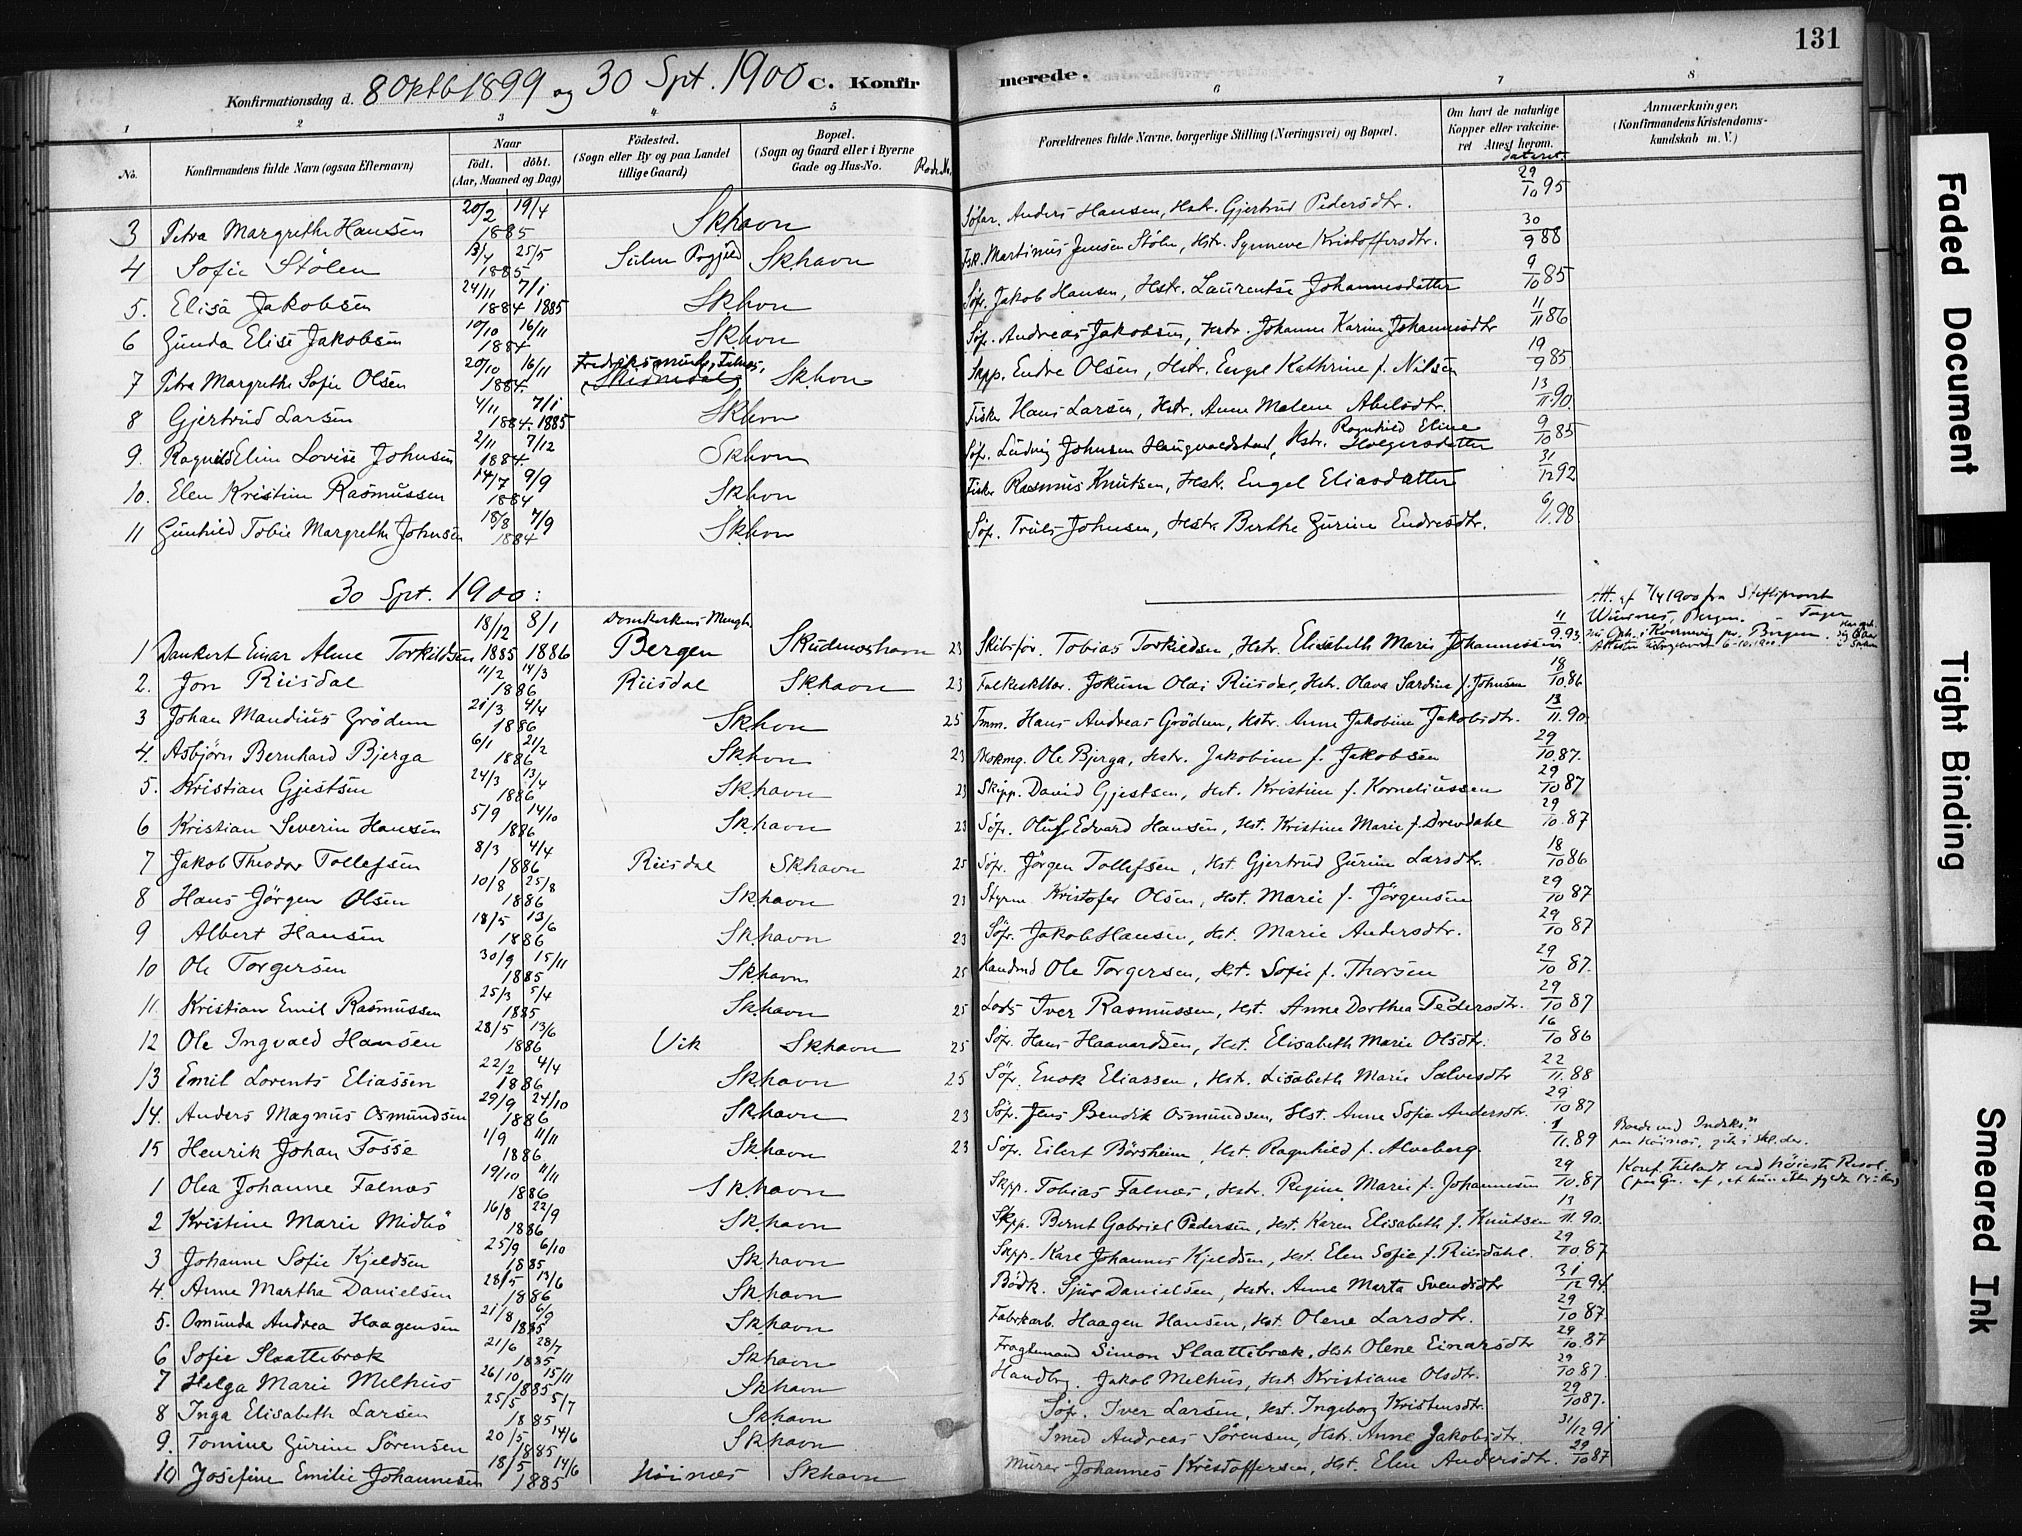 131
Konfirmationsdag d. 8 Oktb 1899 og 30 Spt. 1900 C. Konfirmerede.
1 2 3 4 5 6 7 8
No. Konfirmandens fulde Navn (ogsaa Efternavn) Naar Födt. döbt. (Aar, Maaned og Dag) Födested. (Sogn eller By og paa Landet tillige Gaard) Bopæl. (Sogn og Gaard eller i Byerne Gade og Hus-No. Forældrenes fulde Navne, borgerlige Stilling (Næringsvei) og Bopæl. Om havt de naturlige Kopper eller vakcineret Attest herom. dateret. Anmærkninger, (Konfirmandens Kristendomskundskab m. V.)
3 Petra Margrethe Hansen 20/2 19/4 1885 Skhavn Söfar. Anders Hansen, Hstr. Gjertrud Pedersdtr. 29/10 95
4 Sofie Stölen 25/5 1885 Skhavn Martinus Jensen Stölen, Hstr. Synneve Kristoffersdtr. 30/9 88
5. Elisa Jakobsen 24/11 1884 7/1 1885 Skhvn Söf. Jakob Hansen, Hstr. Laurentse Johannesdatter 9/10 85
6 Gunda Elise Jakobsen 10/10 16/11 1884 Skhvn Söf. Andreas Jakobsen, Hstr. Johanne Karine Johannesdtr 11/11 86
7 Petra Margrethe Sofie Olsen 20/10 16/11 1884. Skhvn Skpp. Endre Olsen, Hstr. Engel Kathrine f. Nilsen 19/9 85
8 Gjertrud Larsen 4/11 1884. 7/1 1885 Skhvn Fisker Hans Larsen, Hstr. Anne Malene Abelsdtr. 13/11 90.
9. Ragnild Eline Lovise Johnsen 2/11 7/12 1884. Skhvn Söf. Ludvig Johnsen Haugvaldstad, Hstr. Ragnhild Eline Holgersdatter 9/10 85
10. Elen Kristine Rasmussen 14/7 9/9 1884 Skhvn Fisker Rasmus Knutsen, Hstr. Engel Eliasdatter 31/12 92
11 Gunhild Tobie Margrethe Johnsen 18/8 7/9 1884 Skhvn Söf. Truls Johnsen, Hstr. Berthe Gurine Endresdtr. 6/1 98
30 Spt. 1900:
1 Dankert Einar Alme Torkildsen 18/12 1885 8/1 1886 Domkirkens Mengh. Bergen Skudeneshavn 23 Skibsför. Tobias Torkildsen, Hstr. Elisabeth Marie Johannessen 11/9 93.
2. Jon Riisdal 11/2 14/3 1886 Riisdal Skhavn 23 Jokum Olai Riisdal, Hstr. Olava Sardine f. Johnsen 18/10 86
3 Johan Mandius Grödem 21/3 4/4 1886 Skhvn 25 Tmm. Hans Andreas Grödem, Hstr. Anne Jakobine Jakobsdtr. 13/11 90.
4. Asbjörn Bernhard Bjerga 6/1 21/2 1886 Skhvn 23 Ole Bjerga, Hstr. Jakobine f. Jakobsen 29/10 87.
5. Kristian Gjestsen 24/3 13/4 1886 Skhavn 23 Skipp. David Gjestsen, Hst. Kristine f. Korneliussen 29/10 87
6 Kristian Severin Hansen 5/9 14/10 1886 Skhavn 23 Söf. Oluf Edvard Hansen, Hst. Kristine Marie f. Drevdahl 29/10 87
7 Jakob Theodor Tollefsen 8/3 4/4 1886 Riisdal Skhavn 25 Söf. Jörgen Tollefsen, Hst Gjertrud Gurine Larsdtr. 18/10 86
8 Hans Jörgen Olsen 10/8 25/8 1886 Skhavn 23 Styrm Kristofer Olsen, Hst. Marie f. Jörgensen 29/10 87
9 Albert Hansen 18/5 13/6 1886 Skhavn 23 Söf. Jakob Hansen, Hst. Marie Andersdtr. 29/10 87
10 Ole Torgersen 30/9 15/11 1885 Skhavn 25 Ole Torgersen, Hst. Sofie f. Thorsen 29/10 87.
11. Kristian Emil Rasmussen 25/3 5/4 1885 Skhavn 25 Lods Iver Rasmussen, Hst. Anne Dorthea Pedersdtr. 29/10 87
12 Ole Ingvald Hansen 28/5 13/6 1886 Vik Skhavn 25 Söf. Hans Haavardsen, Hst. Elisabeth Marie Olsdtr. 16/10 86
13 Emil Lorents Eliassen 22/2 4/4 1886 Skhavn 25 Söf. Enok Eliassen, Hst. Lisabeth Marie Salvesdtr 22/11 88
14. Anders Magnus Osmundsen 29/9 24/10 1886 Skhavn 23 Söf. Jens Bendik Osmundsen, Hst. Anne Sofie Andersdtr. 29/10 87
15 Henrik Johan Fosse 1/9 11/11 1886 Skhavn 23 Söf. Eilert Börsheim, Hst. Ragnhild f. Alveberg. 1/11 89
1 Olea Johanne Falnæs 19/10 11/11 1886 Skhavn Skpp. Tobias Falnæs, Hstr. Regine Marie f. Johannesen 29/10 87
2 Kristine Marie Midbö 16/8 22/9 1886 Skhavn Skpp. Bernt Gabriel Pedersen, Hst. Karen Elisabeth f. Knutsen 13/11 90.
3 Johanne Sofie Kjeldsen 25/9 6/10 1885 Skhavn Skpp. Karl Johannes Kjeldsen, Hst. Elen Sofie f. Riisdahl. 29/10 87
4. Anne Martha Danielsen 28/5 13/6 1886 Skhavn Bödk. Sjur Danielsen, Hstr. Anne Marta Svendsdtr 31/12 94.
5. Omunda Andrea Haagensen 21/8 6/9 1885 Skhavn Fabrikarb. Haagen Hansen, Hst. Olene Larsdtr. 29/10 87
6 Sofie Slaattebræk 21/6 28/7 1885 Skhavn Fragtemand Simon Slaattebræk, Hst. Olene Einarsdtr 29/10 87
7 Helga Marie Melhus 26/10 15/11 1885 Skhavn Jakob Melhus, Hst. Kristiane Olsdtr. 29/10 87.
8 Inga Elisabeth Larsen 25/5 5/7 1885 Skhavn Söf. Iver Larsen, Hst. Ingeborg Kristensdtr. 29/10 87.
9. Tomine Gurine Sörensen 20/5 14/6 1885 Skhavn Smed Andreas Sörensen, Hstr. Anne Jakobsdtr. 31/12 91
10 Josefine Emilie Johannesen 18/5 14/6 1885 Höinæs Skhavn Murer Johannes Kristoffersen, Hst. Elen Andersdtr. 29/10 87
Faded Document
Tight Binding
Smeared Ink